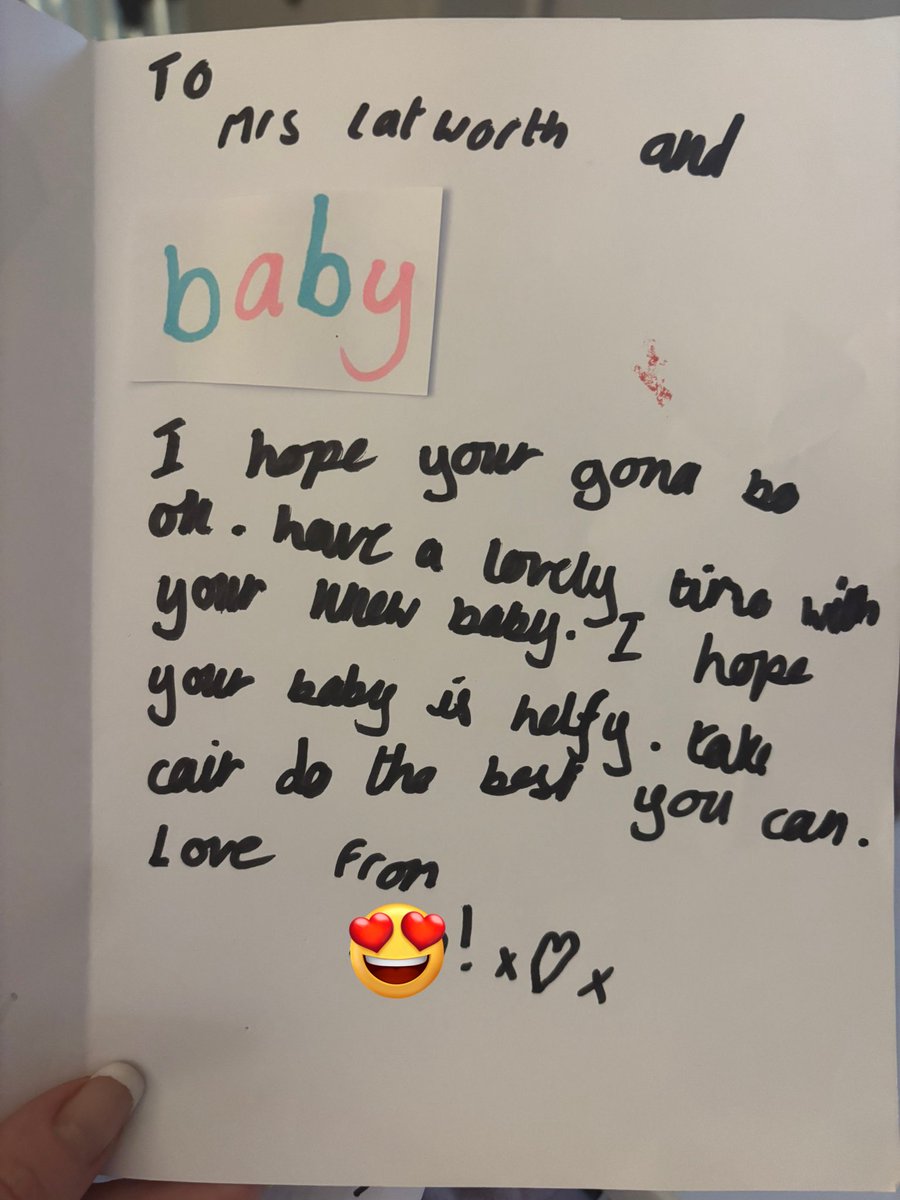 To
Mrs Latworth and
baby
I hope your gona be
ok. have a lovely time with
your nnew baby. I hope
your baby is helfy. take
cair do the best you can.
Love From
! x ♡ x